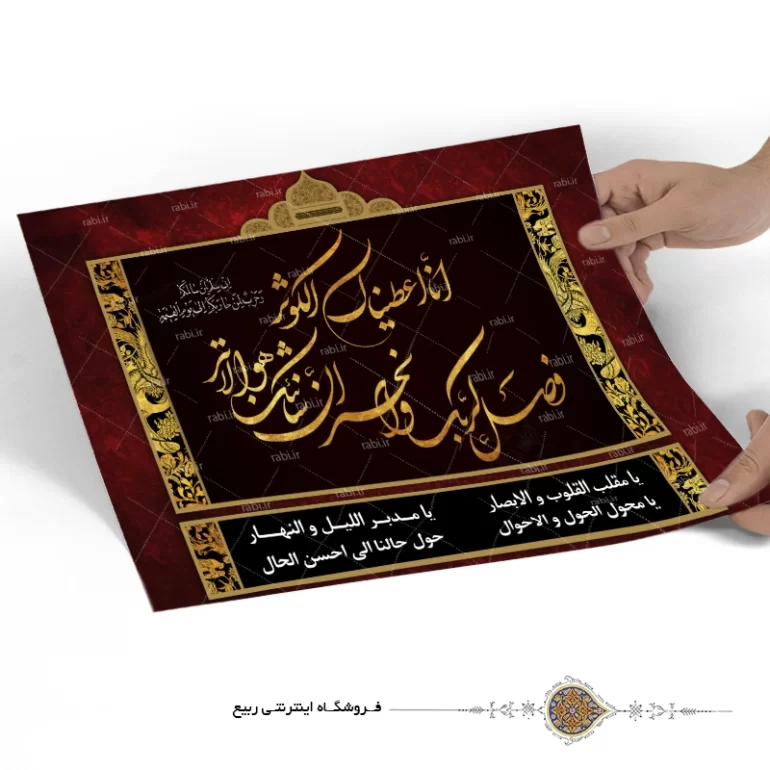 انا اعطیناک الکوثر
فصل لربک وانحر ان شانئک هو الابتر
یا مقلب القلوب و الابصار
یا مدبر اللیل و النهار
یا محول الحول و الاحوال
حول حالنا الی احسن الحال
فروشگاه اینترنتی ربیع
rabi.ir